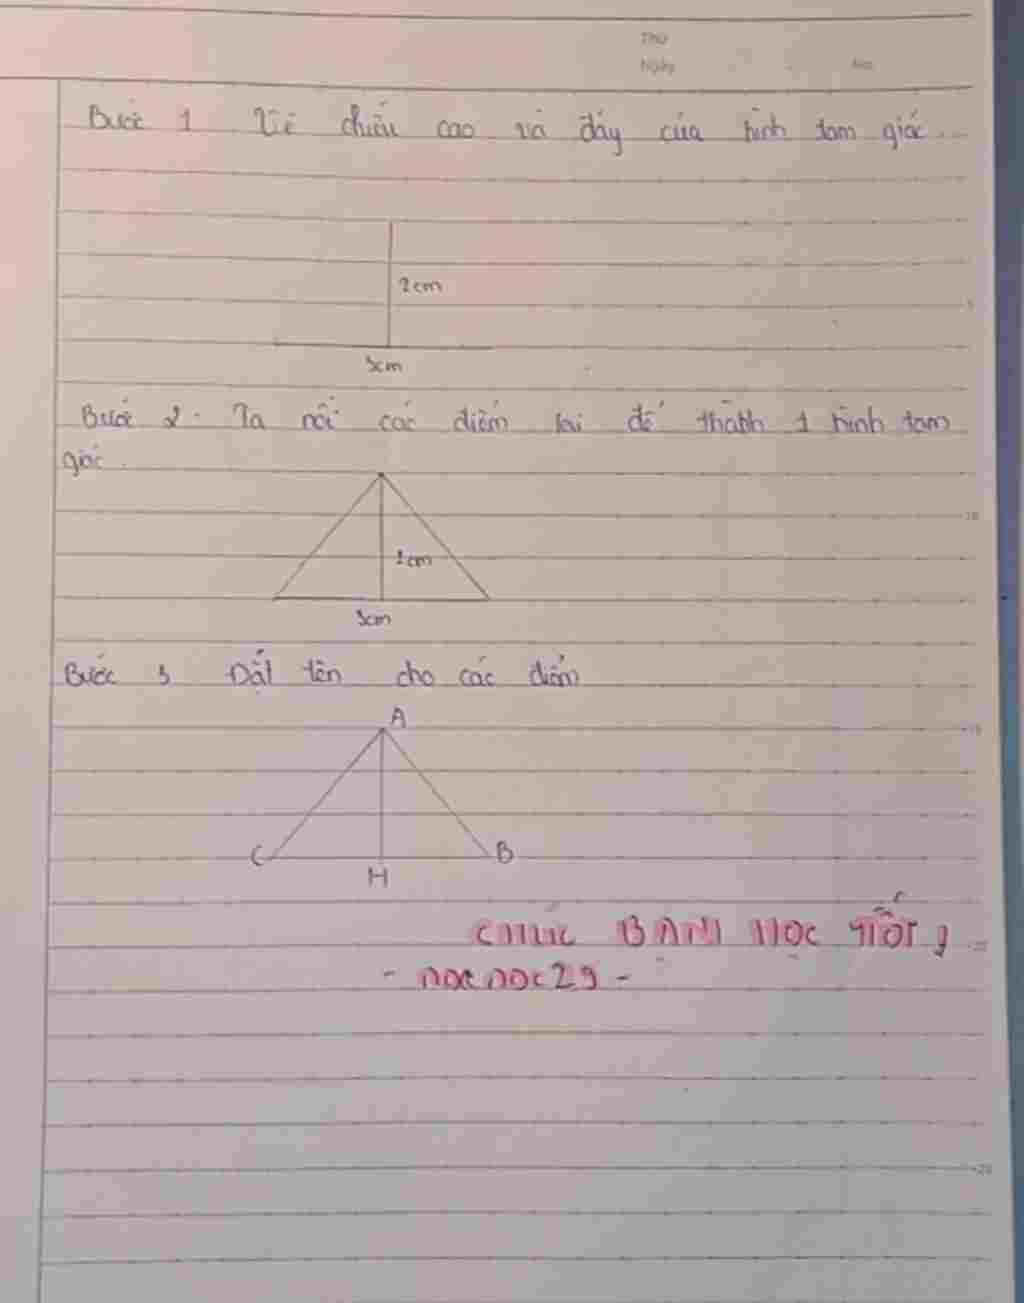 Thứ
Ngày
No.
Bước 1 Vẽ chiều cao và đáy của hình tam giác.
2cm
3cm
Bước 2. Ta nối các điểm lại để thành 1 hình tam
giác.
2cm
3cm
Bước 3 Đặt tên cho các điểm
A
C B
H
CHÚC BẠN HỌC TỐT!
- nocnoc29 -